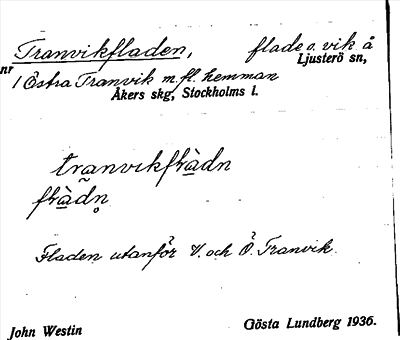 Tranvikfladen, flade o. vik å
Ljusterö sn,
nr 1 Östra Tranvik m. fl. hemman
Åkers skg, Stockholms l.
tranvikfràdn
fràdn
Fladen utanför V. och Ö. Tranvik.
John Westin Gösta Lundberg 1936.